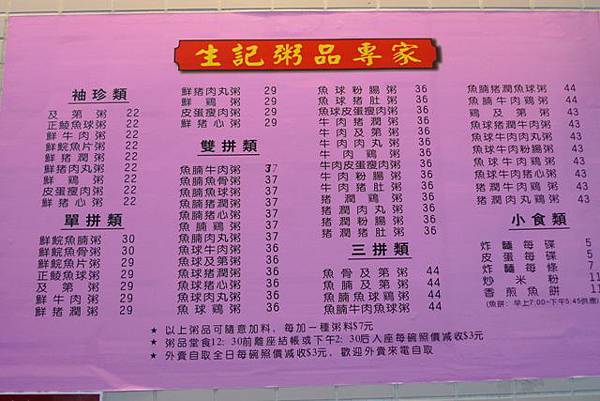 生記粥品專家
袖珍類
及第粥 22
正鯪魚球粥 22
鮮牛肉粥 22
鮮鯇魚片粥 22
鮮豬潤粥 22
鮮豬肉丸粥 22
鮮鷄粥 22
皮蛋瘦肉粥 22
鮮豬心粥 22
單拼類
鮮鯇魚腩粥 30
鮮鯇魚骨粥 30
鮮鯇魚片粥 29
正鯪魚球粥 29
及第粥 29
鮮牛肉粥 29
鮮豬潤粥 29
鮮豬肉丸粥 29
鮮鷄粥 29
皮蛋瘦肉粥 29
鮮豬心粥 29
雙拼類
魚腩牛肉粥 37
魚腩魚骨粥 37
魚腩魚球粥 37
魚腩豬潤粥 37
魚腩豬心粥 37
魚腩鷄粥 37
魚腩肉丸粥 37
魚球牛肉粥 36
魚球及第粥 36
魚球豬潤粥 36
魚球豬心粥 36
魚球肉丸粥 36
魚球鷄粥 36
魚球粉腸粥 36
魚球豬肚粥 36
魚球皮蛋瘦肉粥 36
牛肉豬潤粥 36
牛肉及第粥 36
牛肉肉丸粥 36
牛肉鷄粥 36
牛肉皮蛋瘦肉粥 36
牛肉粉腸粥 36
牛肉豬肚粥 36
豬潤鷄粥 36
豬潤肉丸粥 36
豬潤豬心粥 36
豬潤豬肚粥 36
三拼類
魚骨及第粥 44
魚腩及第粥 44
魚腩魚球鷄粥 44
魚腩魚球牛肉粥 44
魚腩豬潤魚球粥 44
魚腩牛肉鷄粥 44
鷄及第粥 43
魚球豬潤牛肉粥 43
魚球牛肉肉丸粥 43
魚球牛肉粉腸粥 43
魚球牛肉鷄粥 43
魚球牛肉豬心粥 43
豬潤牛肉鷄粥 43
豬潤牛肉肉丸粥 43
小食類
炸麵每碟 5
皮蛋每碟 5
炸麵每條 7
炒米粉 11
香煎魚餅 11
(魚餅: 早上7:00-下午5:45供應)
★ 以上粥品可隨意加料，每加一種粥料$7元
★ 粥品堂食12:30前離座結帳或下午2:30后入座每碗照價減收$3元
★ 外賣自取全日每碗照價減收$3元，歡迎外賣來電自取